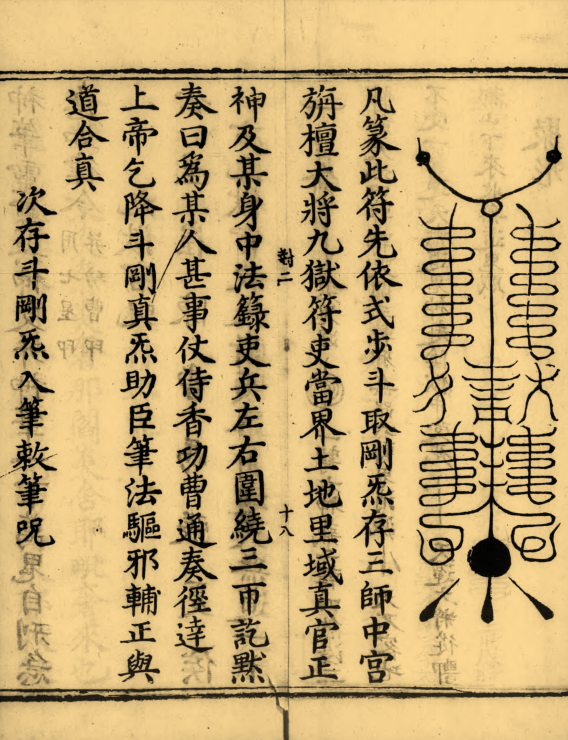 凡篆此符先依式步斗取剛炁存三師中宮
旃檀大將九獄符吏當界土地里域真官正
對二
十八
神及某身中法籙吏兵左右圍繞三帀訖默
奏曰爲某人甚事仗侍香功曹通奏徑達
上帝乞降斗剛真炁助臣筆法驅邪輔正與
道合真
次存斗剛炁入筆敕筆呪